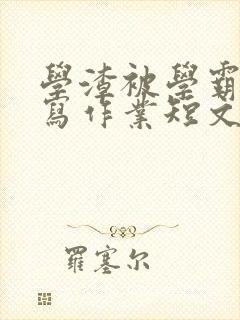 學渣被學霸
寫作業短文
羅塞尔